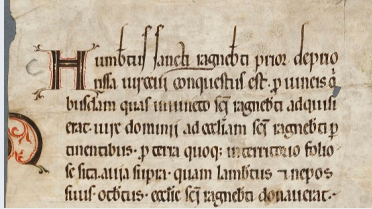 Humbtus sancti ragnebti prior de prio
conquestus est. p vineis q
busdam quas in vineto sci ragnebti adquisi
erat. iure dominii ad eccliam sci ragnebti p
tinentibus. p terra quoq; in territorio folio
se sita. supra. quam lambtus & nepos
suus otbtus. ecclie sci ragnebti donaverat.